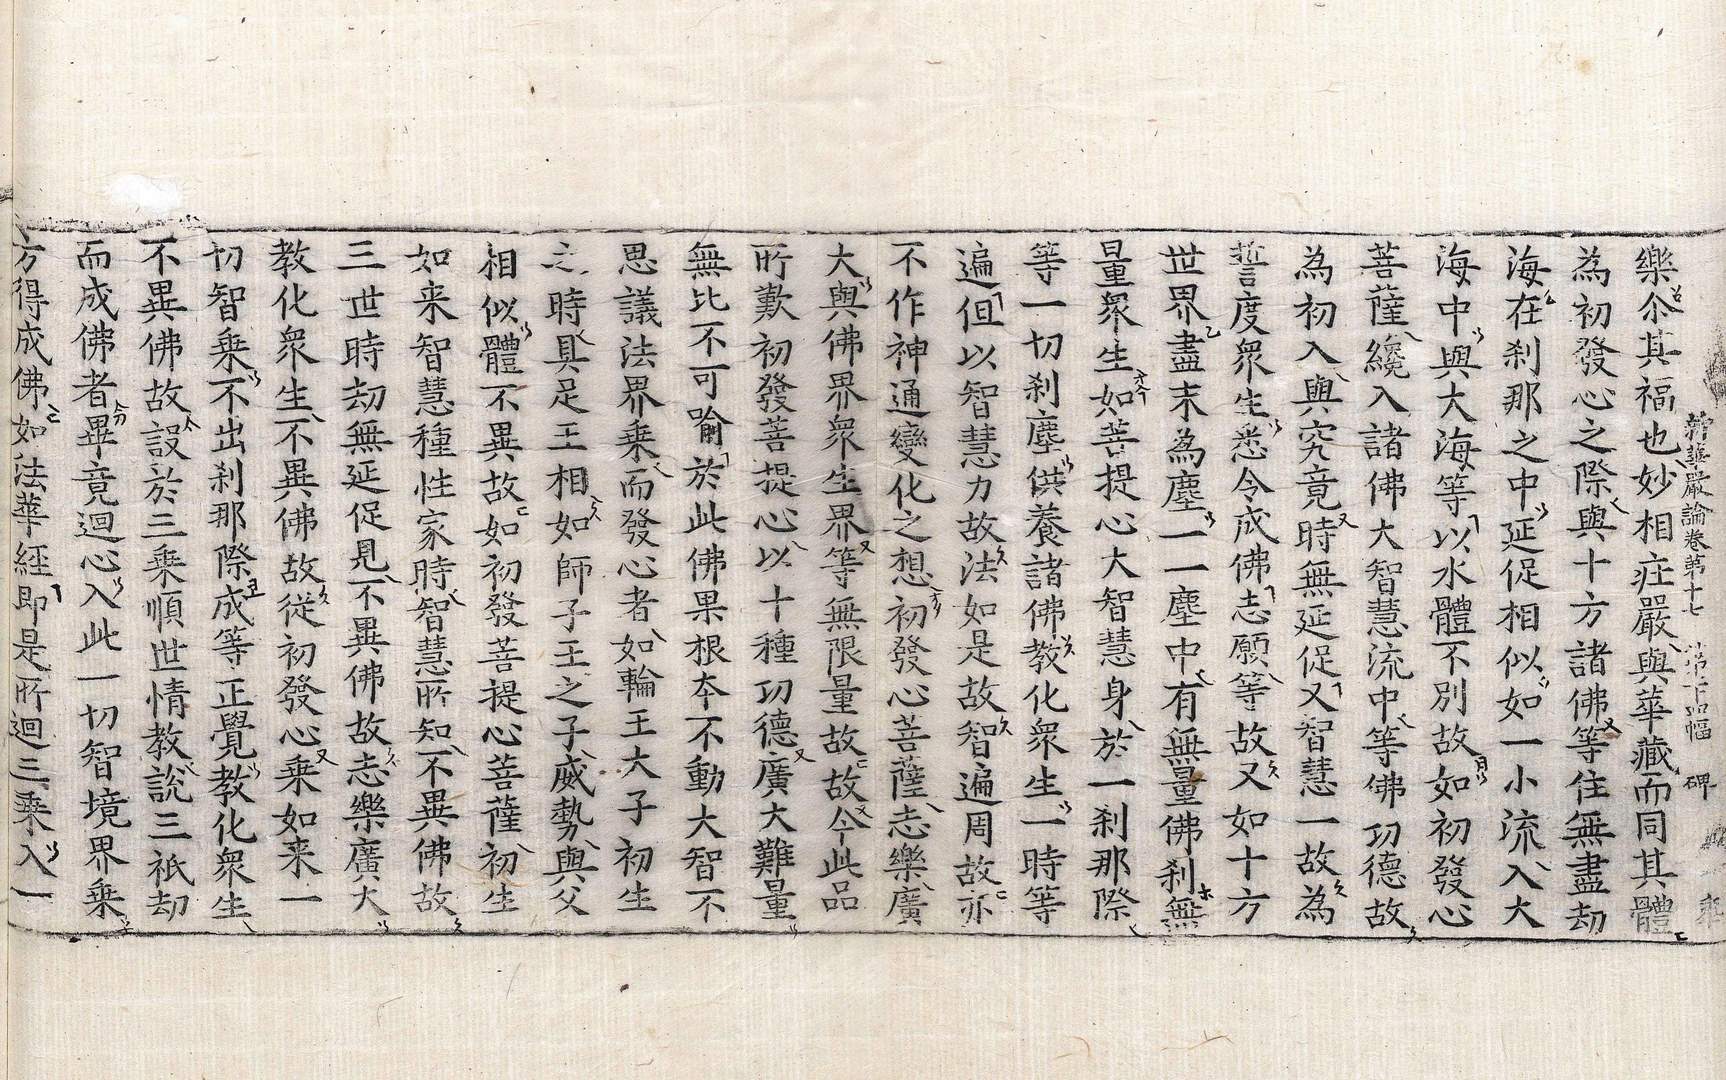 新華嚴論卷第十七 第十四幅 碑
樂尒其福也妙相莊嚴與華藏而同其體
為初發心之際與十方諸佛等住無盡劫
海在刹那之中延促相似如一小流入大
海中與大海等以水體不別故如初發心
菩薩纔入諸佛大智慧流中等佛功德故
為初入與究竟時無延促又智慧一故為
誓度衆生悉令成佛志願等故又如十方
世界盡末為塵一一塵中有無量佛刹無
量衆生如菩提心大智慧身於一刹那際
等一切刹塵供養諸佛教化衆生一時等
遍但以智慧力故法如是故智遍周故亦
不作神通變化之想初發心菩薩志樂廣
大與佛界衆生界等無限量故故今此品
所歎初發菩提心以十種功德廣大難量
無比不可喻於此佛果根本不動大智不
思議法界乘而發心者如輪王大子初生
之時具足王相如師子王之子威勢與父
相似體不異故如初發菩提心菩薩初生
如来智慧種性家時智慧所知不異佛故
三世時劫無延促見不異佛故志樂廣大
教化衆生不異佛故從初發心乘如来一
切智乘不出刹那際成等正覺教化衆生
不異佛故設於三乘順世情教說三祇劫
而成佛者畢竟迴心入此一切智境界乘
方得成佛如法華經即是所迴三乘入一